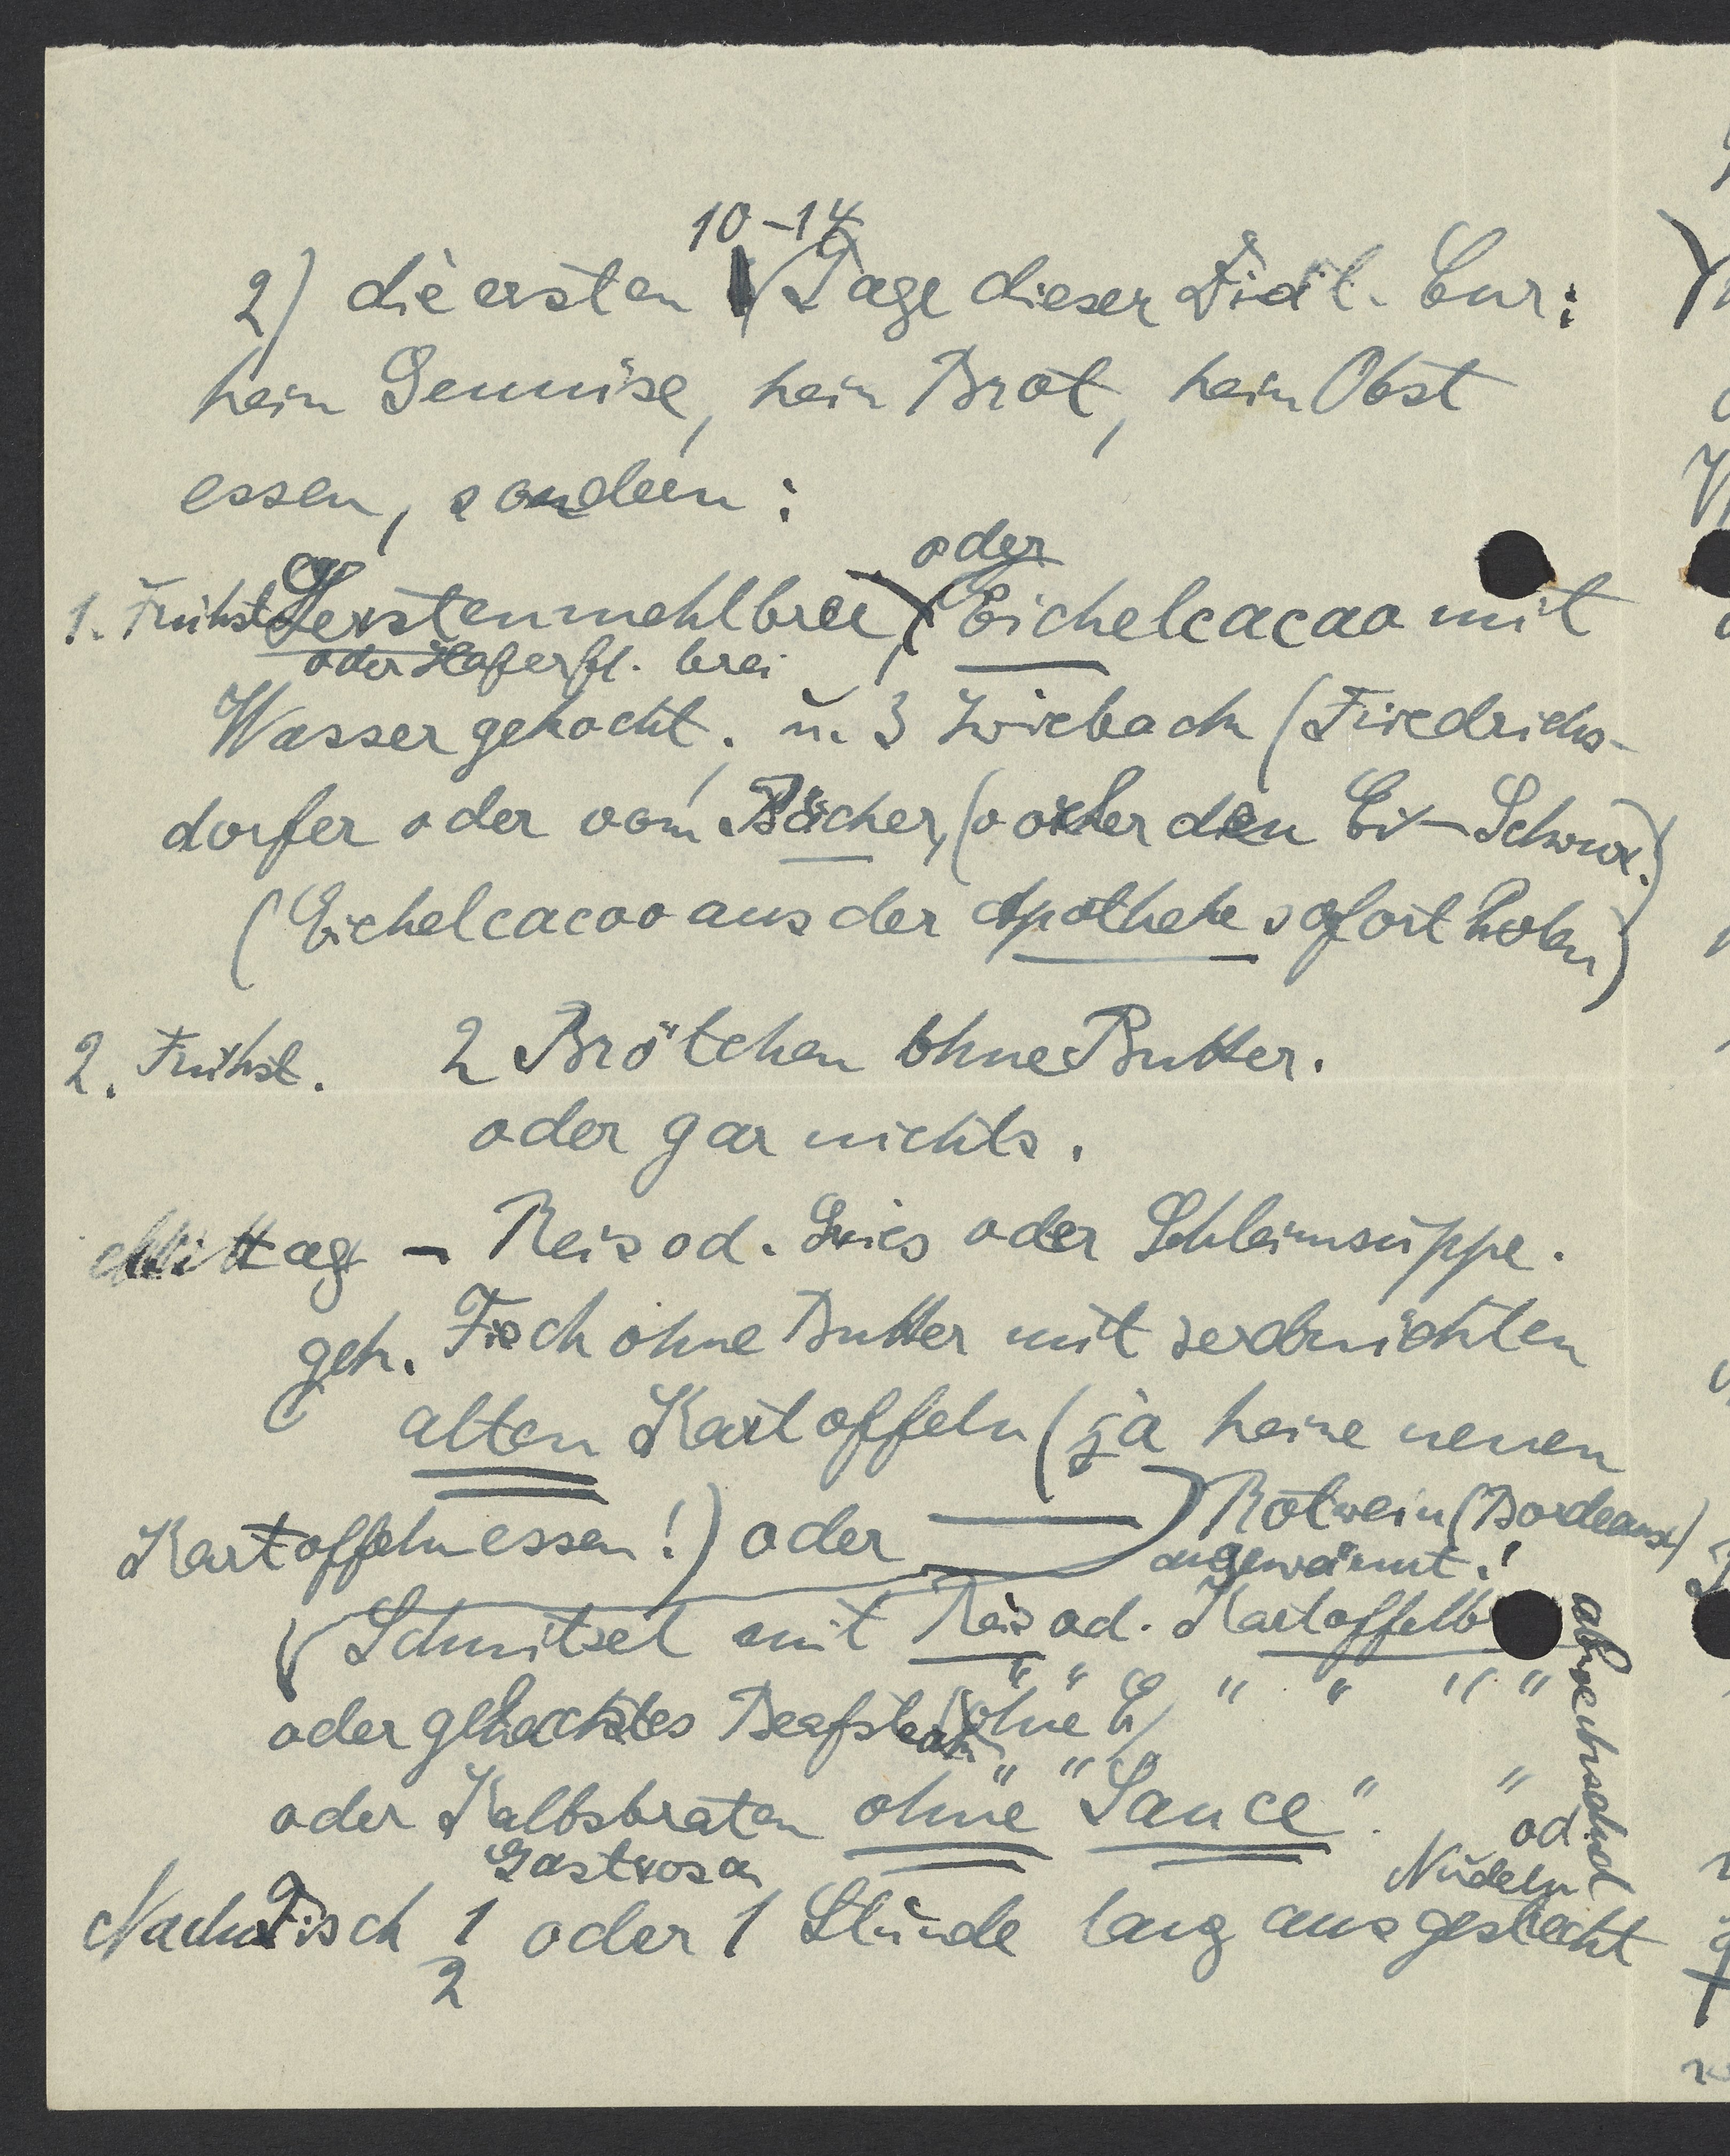 10–14
2) die ersten Tage dieser Diät. Cur:
kein Gemüse, kein Brot, kein Obst
essen, sondern:
oder
1. Frühst Gerstenmehlbrei, Eichelcacao mit
oder Haferfl. brei
Wasser gekocht. u. 3 Zwieback (Friedrichs-
dorfer oder vom Bäcker, (oder den Ei-
(Eichelcacao aus der Apotheke sofort holen)
2. Frühst. 2 Brötchen ohne Butter.
oder gar nichts.
Mittag – Reis od. Gries oder Schleimsuppe.
gek. Fisch ohne Butter mit zerdrückten
alten Kartoffeln (ja keine neuen
Kartoffeln essen!) oder Rotwein (Bordeaux)
angewärmt!
Schnitzel mit Reis od. Kartoffelb
" " " " " "
oder gehacktes Beefsteak (ohne Ei)
" " " "
oder Kalbsbraten ohne Sauce. od.
abwechselnd
Gastrosan Nudeln
Nach Tisch 1/2 oder 1 Stunde lang ausgestreckt